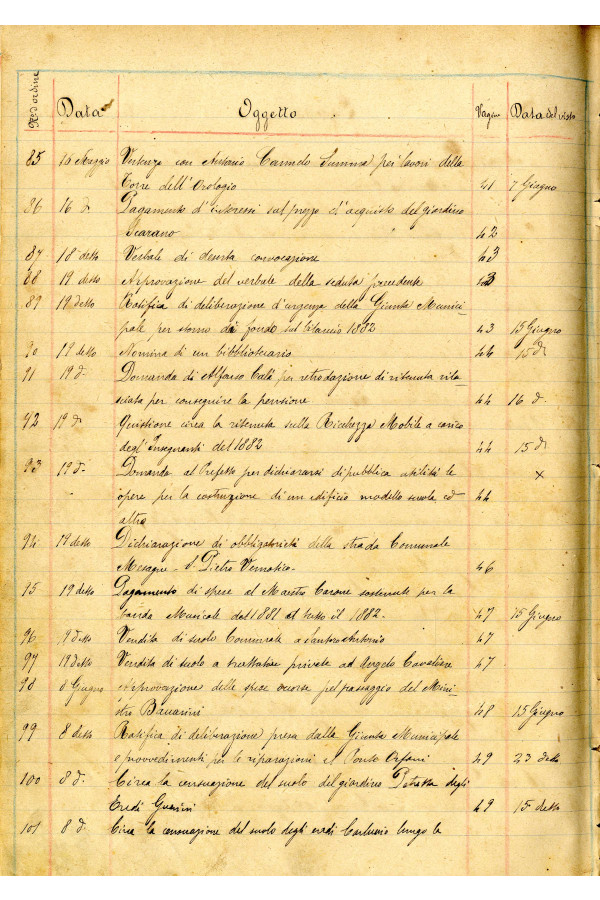 N° d'ordine Data Oggetto Pagina Data del visto
85 16 Maggio Vertenza con Antonio Carmelo Summa pei lavori della
Torre dell'Orologio 41 7 Giugno
86 16 d. Pagamento d'interessi sul prezzo d'acquisto del giardino
Scarano 42
87 18 detto Verbale di deserta convocazione 43
88 19 detto Approvazione del verbale della seduta precedente 43
89 19 detto Ratifica di deliberazione d'urgenza della Giunta Munici
pale per storno di fondo sul bilancio 1882 43 15 Giugno
90 19 detto Nomina di un bibbliotecario 44 15 d.
91 19 d. Domanda di Alfonso Calà per retrodazione di ritenuta rila
sciata per conseguire la pensione 44 16 d.
92 19 d. Quistione circa la ritenuta sulla Ricchezza Mobile a carico
degli Insegnanti del 1882 44 15 d.
93 19 d. Domanda al Prefetto per dichiararsi di pubblica utilità le
opere per la costruzione di un edificio modello scuola ed 44 x
altro
94 19 detto Dichiarazione di obbligatorietà della strada Comunale
Mesagne - S. Pietro Vernotico. 46
95 19 detto Pagamento di spese al Maestro Carone sostenute per la
banda Musicale dal 1881 al tutto il 1882. 47 15 Giugno
96 9 detto Vendita di suolo Comunale a Santoro Antonio 47
97 19 detto Vendita di suolo a trattative private ad Angelo Cavaliere 47
98 8 Giugno Approvazione delle spese occorse pel passaggio del Mini
stro Baccarini 48 15 Giugno
99 8 detto Ratifica di deliberazione presa dalla Giunta Municipale
e provvedimenti per le riparazioni al Ponte 49 23 detto
100 8 d. Circa la censuazione del suolo del giardino degli
Eredi Guarini 49 15 detto
101 8 d. Circa la censuazione del suolo degli eredi lungo la